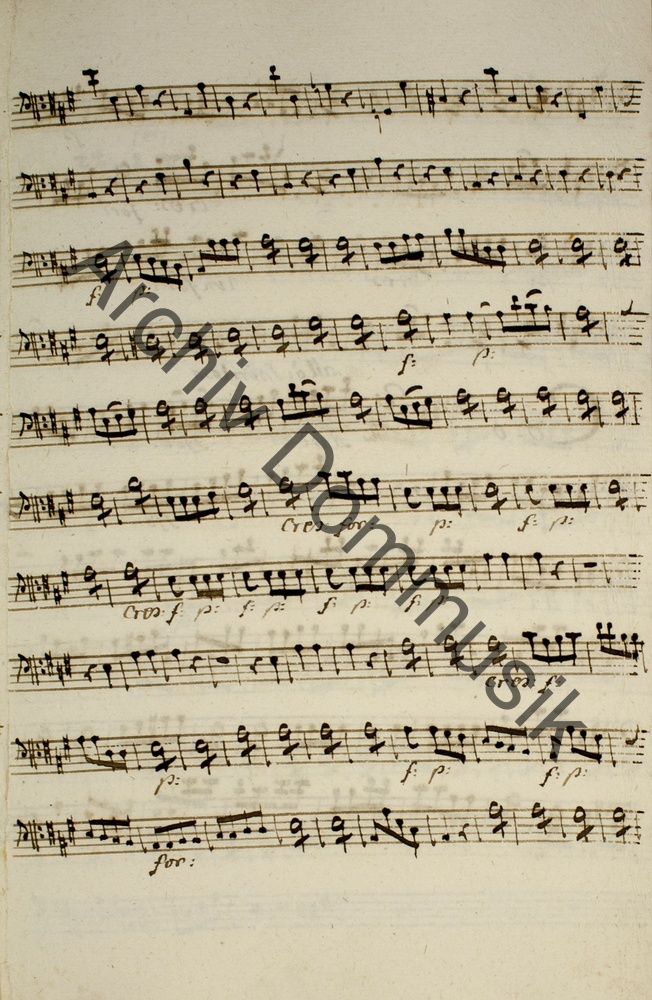 Archiv Dommusik
f: p:
f: p:
Cres for: p: f: p:
Cres: f: p: f: p: f: p: f: p:
cres: f:
p: f: p: f: p:
for: